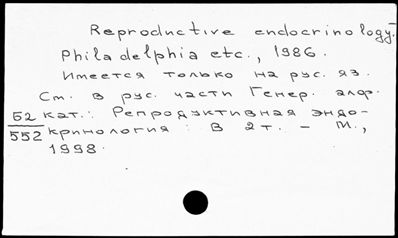 Reproductive endocrinology.-
Philadelphia etc., 1986.
Имеется только на рус. яз.
См. в рус. части Генер. алф.
Б2 кат.: Репродуктивная эндо-
552 кринология : В 2 т. - М.,
1998.